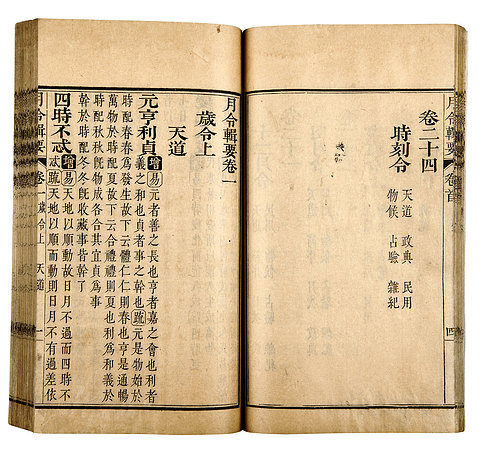 月令輯要 卷首 四
卷二十四
時刻令
天道 政典 民用
物候 占驗 雜紀
月令輯要卷一
歲令上
天道
元亨利貞 增 易 元者善之長也亨者嘉之會也利者
義之和也貞者事之幹也疏元是物始於
時配春春為發生故下云體仁仁則春也亨是通暢
萬物於時配夏故下云合禮禮則夏也利為和義於
時配秋秋既物成各合其宜貞為事
幹於時配冬冬既收藏事皆幹了
四時不忒 增 易 天地以順動故日月不過而四時不
忒疏天地以順而動則日月不有過差依
月令輯要 卷一 歲令上 天道 一